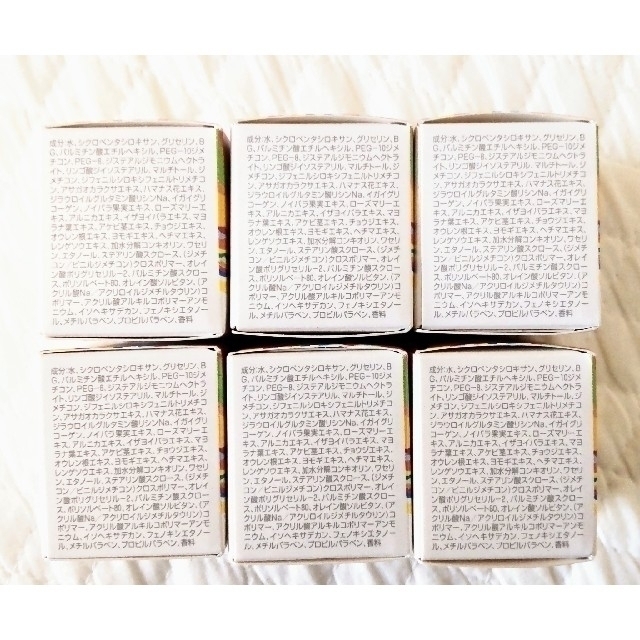 成分:水、シクロペンタシロキサン、グリセリン、B
G、パルミチン酸エチルヘキシル、PEG-10ジメ
チコン、PEG-8、ジステアルジモニウムヘクトラ
イト、リンゴ酸ジイソステアリル、マルチトール、ジ
メチコン、ジフェニルシロキシフェニルトリメチコン、
アサガオカラクサエキス、ハマナス花エキス、
ジラウロイルグルタミン酸リシンNa、イガイグリ
コーゲン、ノイバラ果実エキス、ローズマリーエ
キス、アルニカエキス、イザヨイバラエキス、マヨ
ラナ葉エキス、アケビ茎エキス、チョウジエキス、
オウレン根エキス、ヨモギエキス、ヘチマエキス、
レンゲソウエキス、加水分解コンキオリン、ワセリ
ン、エタノール、ステアリン酸スクロース、(ジメチ
コン/ビニルジメチコン)クロスポリマー、オレイ
ン酸ポリグリセリル-2、パルミチン酸スクロー
ス、ポリソルベート80、オレイン酸ソルビタン、(ア
クリル酸Na/アクリロイルジメチルタウリン)コ
ポリマー、アクリル酸アルキルコポリマーアンモ
ニウム、イソヘキサデカン、フェノキシエタノー
ル、メチルパラベン、プロピルパラベン、香料
成分:水、シクロペンタシロキサン、グリセリン、B
G、パルミチン酸エチルヘキシル、PEG-10ジメ
チコン、PEG-8、ジステアルジモニウムヘクトラ
イト、リンゴ酸ジイソステアリル、マルチトール、ジ
メチコン、ジフェニルシロキシフェニルトリメチコン、
アサガオカラクサエキス、ハマナス花エキス、
ジラウロイルグルタミン酸リシンNa、イガイグリ
コーゲン、ノイバラ果実エキス、ローズマリーエ
キス、アルニカエキス、イザヨイバラエキス、マヨ
ラナ葉エキス、アケビ茎エキス、チョウジエキス、
オウレン根エキス、ヨモギエキス、ヘチマエキス、
レンゲソウエキス、加水分解コンキオリン、ワセリ
ン、エタノール、ステアリン酸スクロース、(ジメチ
コン/ビニルジメチコン)クロスポリマー、オレイ
ン酸ポリグリセリル-2、パルミチン酸スクロー
ス、ポリソルベート80、オレイン酸ソルビタン、(ア
クリル酸Na/アクリロイルジメチルタウリン)コ
ポリマー、アクリル酸アルキルコポリマーアンモ
ニウム、イソヘキサデカン、フェノキシエタノー
ル、メチルパラベン、プロピルパラベン、香料
成分:水、シクロペンタシロキサン、グリセリン、B
G、パルミチン酸エチルヘキシル、PEG-10ジメ
チコン、PEG-8、ジステアルジモニウムヘクトラ
イト、リンゴ酸ジイソステアリル、マルチトール、ジ
メチコン、ジフェニルシロキシフェニルトリメチコン、
アサガオカラクサエキス、ハマナス花エキス、
ジラウロイルグルタミン酸リシンNa、イガイグリ
コーゲン、ノイバラ果実エキス、ローズマリーエ
キス、アルニカエキス、イザヨイバラエキス、マヨ
ラナ葉エキス、アケビ茎エキス、チョウジエキス、
オウレン根エキス、ヨモギエキス、ヘチマエキス、
レンゲソウエキス、加水分解コンキオリン、ワセリ
ン、エタノール、ステアリン酸スクロース、(ジメチ
コン/ビニルジメチコン)クロスポリマー、オレイ
ン酸ポリグリセリル-2、パルミチン酸スクロー
ス、ポリソルベート80、オレイン酸ソルビタン、(ア
クリル酸Na/アクリロイルジメチルタウリン)コ
ポリマー、アクリル酸アルキルコポリマーアンモ
ニウム、イソヘキサデカン、フェノキシエタノー
ル、メチルパラベン、プロピルパラベン、香料
成分:水、シクロペンタシロキサン、グリセリン、B
G、パルミチン酸エチルヘキシル、PEG-10ジメ
チコン、PEG-8、ジステアルジモニウムヘクトラ
イト、リンゴ酸ジイソステアリル、マルチトール、ジ
メチコン、ジフェニルシロキシフェニルトリメチコン、
アサガオカラクサエキス、ハマナス花エキス、
ジラウロイルグルタミン酸リシンNa、イガイグリ
コーゲン、ノイバラ果実エキス、ローズマリーエ
キス、アルニカエキス、イザヨイバラエキス、マヨ
ラナ葉エキス、アケビ茎エキス、チョウジエキス、
オウレン根エキス、ヨモギエキス、ヘチマエキス、
レンゲソウエキス、加水分解コンキオリン、ワセリ
ン、エタノール、ステアリン酸スクロース、(ジメチ
コン/ビニルジメチコン)クロスポリマー、オレイ
ン酸ポリグリセリル-2、パルミチン酸スクロー
ス、ポリソルベート80、オレイン酸ソルビタン、(ア
クリル酸Na/アクリロイルジメチルタウリン)コ
ポリマー、アクリル酸アルキルコポリマーアンモ
ニウム、イソヘキサデカン、フェノキシエタノー
ル、メチルパラベン、プロピルパラベン、香料
成分:水、シクロペンタシロキサン、グリセリン、B
G、パルミチン酸エチルヘキシル、PEG-10ジメ
チコン、PEG-8、ジステアルジモニウムヘクトラ
イト、リンゴ酸ジイソステアリル、マルチトール、ジ
メチコン、ジフェニルシロキシフェニルトリメチコン、
アサガオカラクサエキス、ハマナス花エキス、
ジラウロイルグルタミン酸リシンNa、イガイグリ
コーゲン、ノイバラ果実エキス、ローズマリーエ
キス、アルニカエキス、イザヨイバラエキス、マヨ
ラナ葉エキス、アケビ茎エキス、チョウジエキス、
オウレン根エキス、ヨモギエキス、ヘチマエキス、
レンゲソウエキス、加水分解コンキオリン、ワセリ
ン、エタノール、ステアリン酸スクロース、(ジメチ
コン/ビニルジメチコン)クロスポリマー、オレイ
ン酸ポリグリセリル-2、パルミチン酸スクロー
ス、ポリソルベート80、オレイン酸ソルビタン、(ア
クリル酸Na/アクリロイルジメチルタウリン)コ
ポリマー、アクリル酸アルキルコポリマーアンモ
ニウム、イソヘキサデカン、フェノキシエタノー
ル、メチルパラベン、プロピルパラベン、香料
成分:水、シクロペンタシロキサン、グリセリン、B
G、パルミチン酸エチルヘキシル、PEG-10ジメ
チコン、PEG-8、ジステアルジモニウムヘクトラ
イト、リンゴ酸ジイソステアリル、マルチトール、ジ
メチコン、ジフェニルシロキシフェニルトリメチコン、
アサガオカラクサエキス、ハマナス花エキス、
ジラウロイルグルタミン酸リシンNa、イガイグリ
コーゲン、ノイバラ果実エキス、ローズマリーエ
キス、アルニカエキス、イザヨイバラエキス、マヨ
ラナ葉エキス、アケビ茎エキス、チョウジエキス、
オウレン根エキス、ヨモギエキス、ヘチマエキス、
レンゲソウエキス、加水分解コンキオリン、ワセリ
ン、エタノール、ステアリン酸スクロース、(ジメチ
コン/ビニルジメチコン)クロスポリマー、オレイ
ン酸ポリグリセリル-2、パルミチン酸スクロー
ス、ポリソルベート80、オレイン酸ソルビタン、(ア
クリル酸Na/アクリロイルジメチルタウリン)コ
ポリマー、アクリル酸アルキルコポリマーアンモ
ニウム、イソヘキサデカン、フェノキシエタノー
ル、メチルパラベン、プロピルパラベン、香料